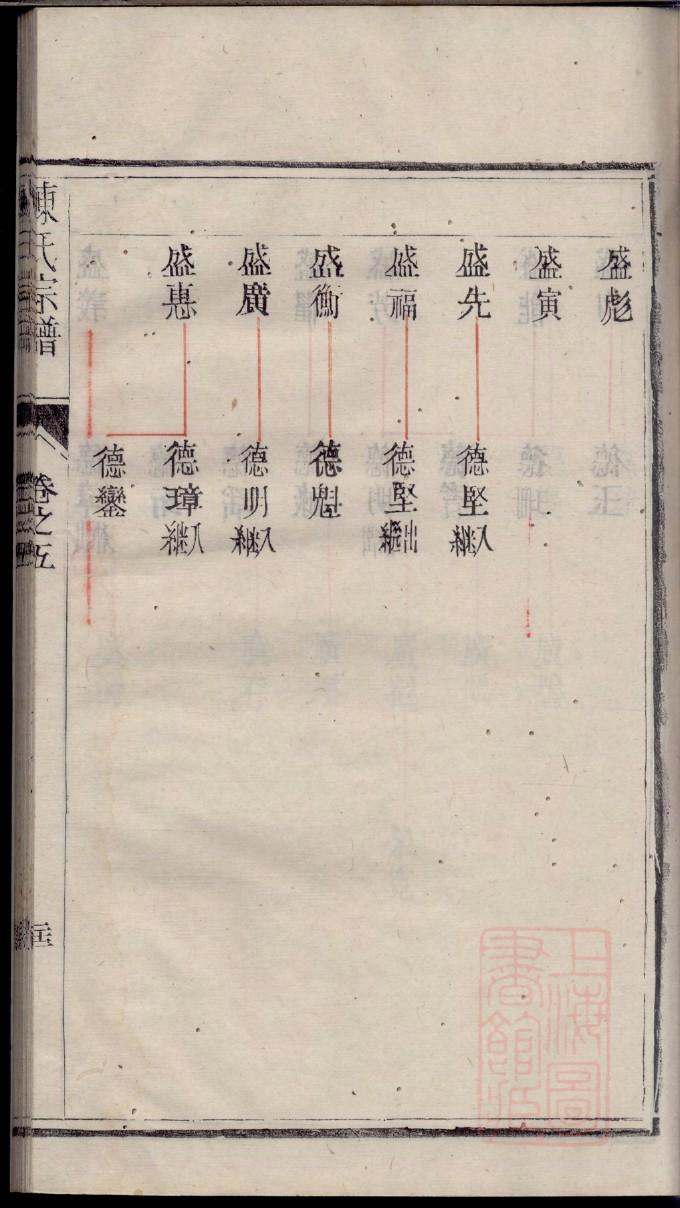 盛彪
盛寅
盛先
德堅入繼
盛福
德堅出繼
盛衡
德魁
盛廣
德明入繼
盛惠
德璋入繼
德鑾
陳氏宗譜
卷之五
上海圖書館藏